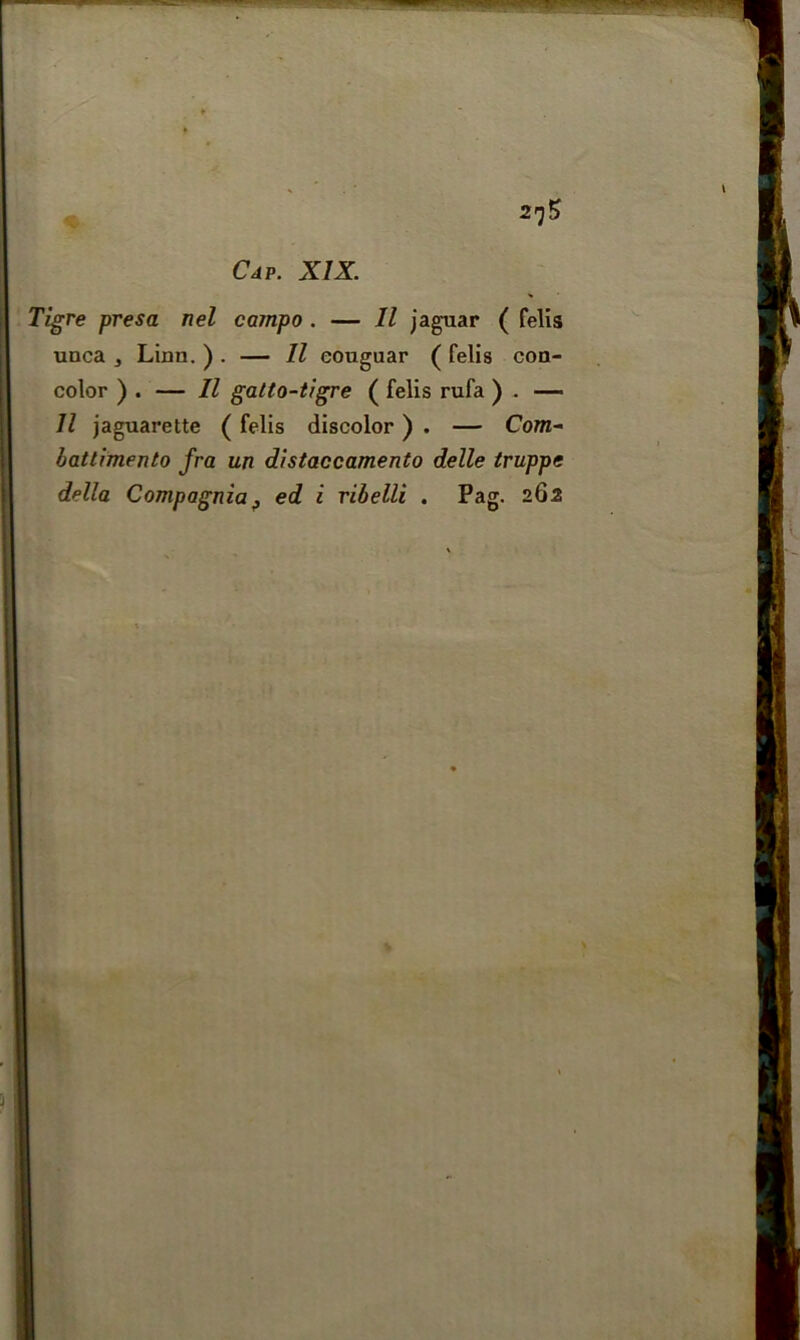 275
CAP. XIX.
Tigre presa nel campo . — Il jaguar ( felis
unca , Linn. ) . — Il couguar ( felis con-
color ) . — Il gatto-tigre ( felis rufa ) . —
Il jaguarette ( felis discolor ) . — Com-
battimento fra un distaccamento delle truppe
della Compagnia, ed i ribelli . Pag. 262